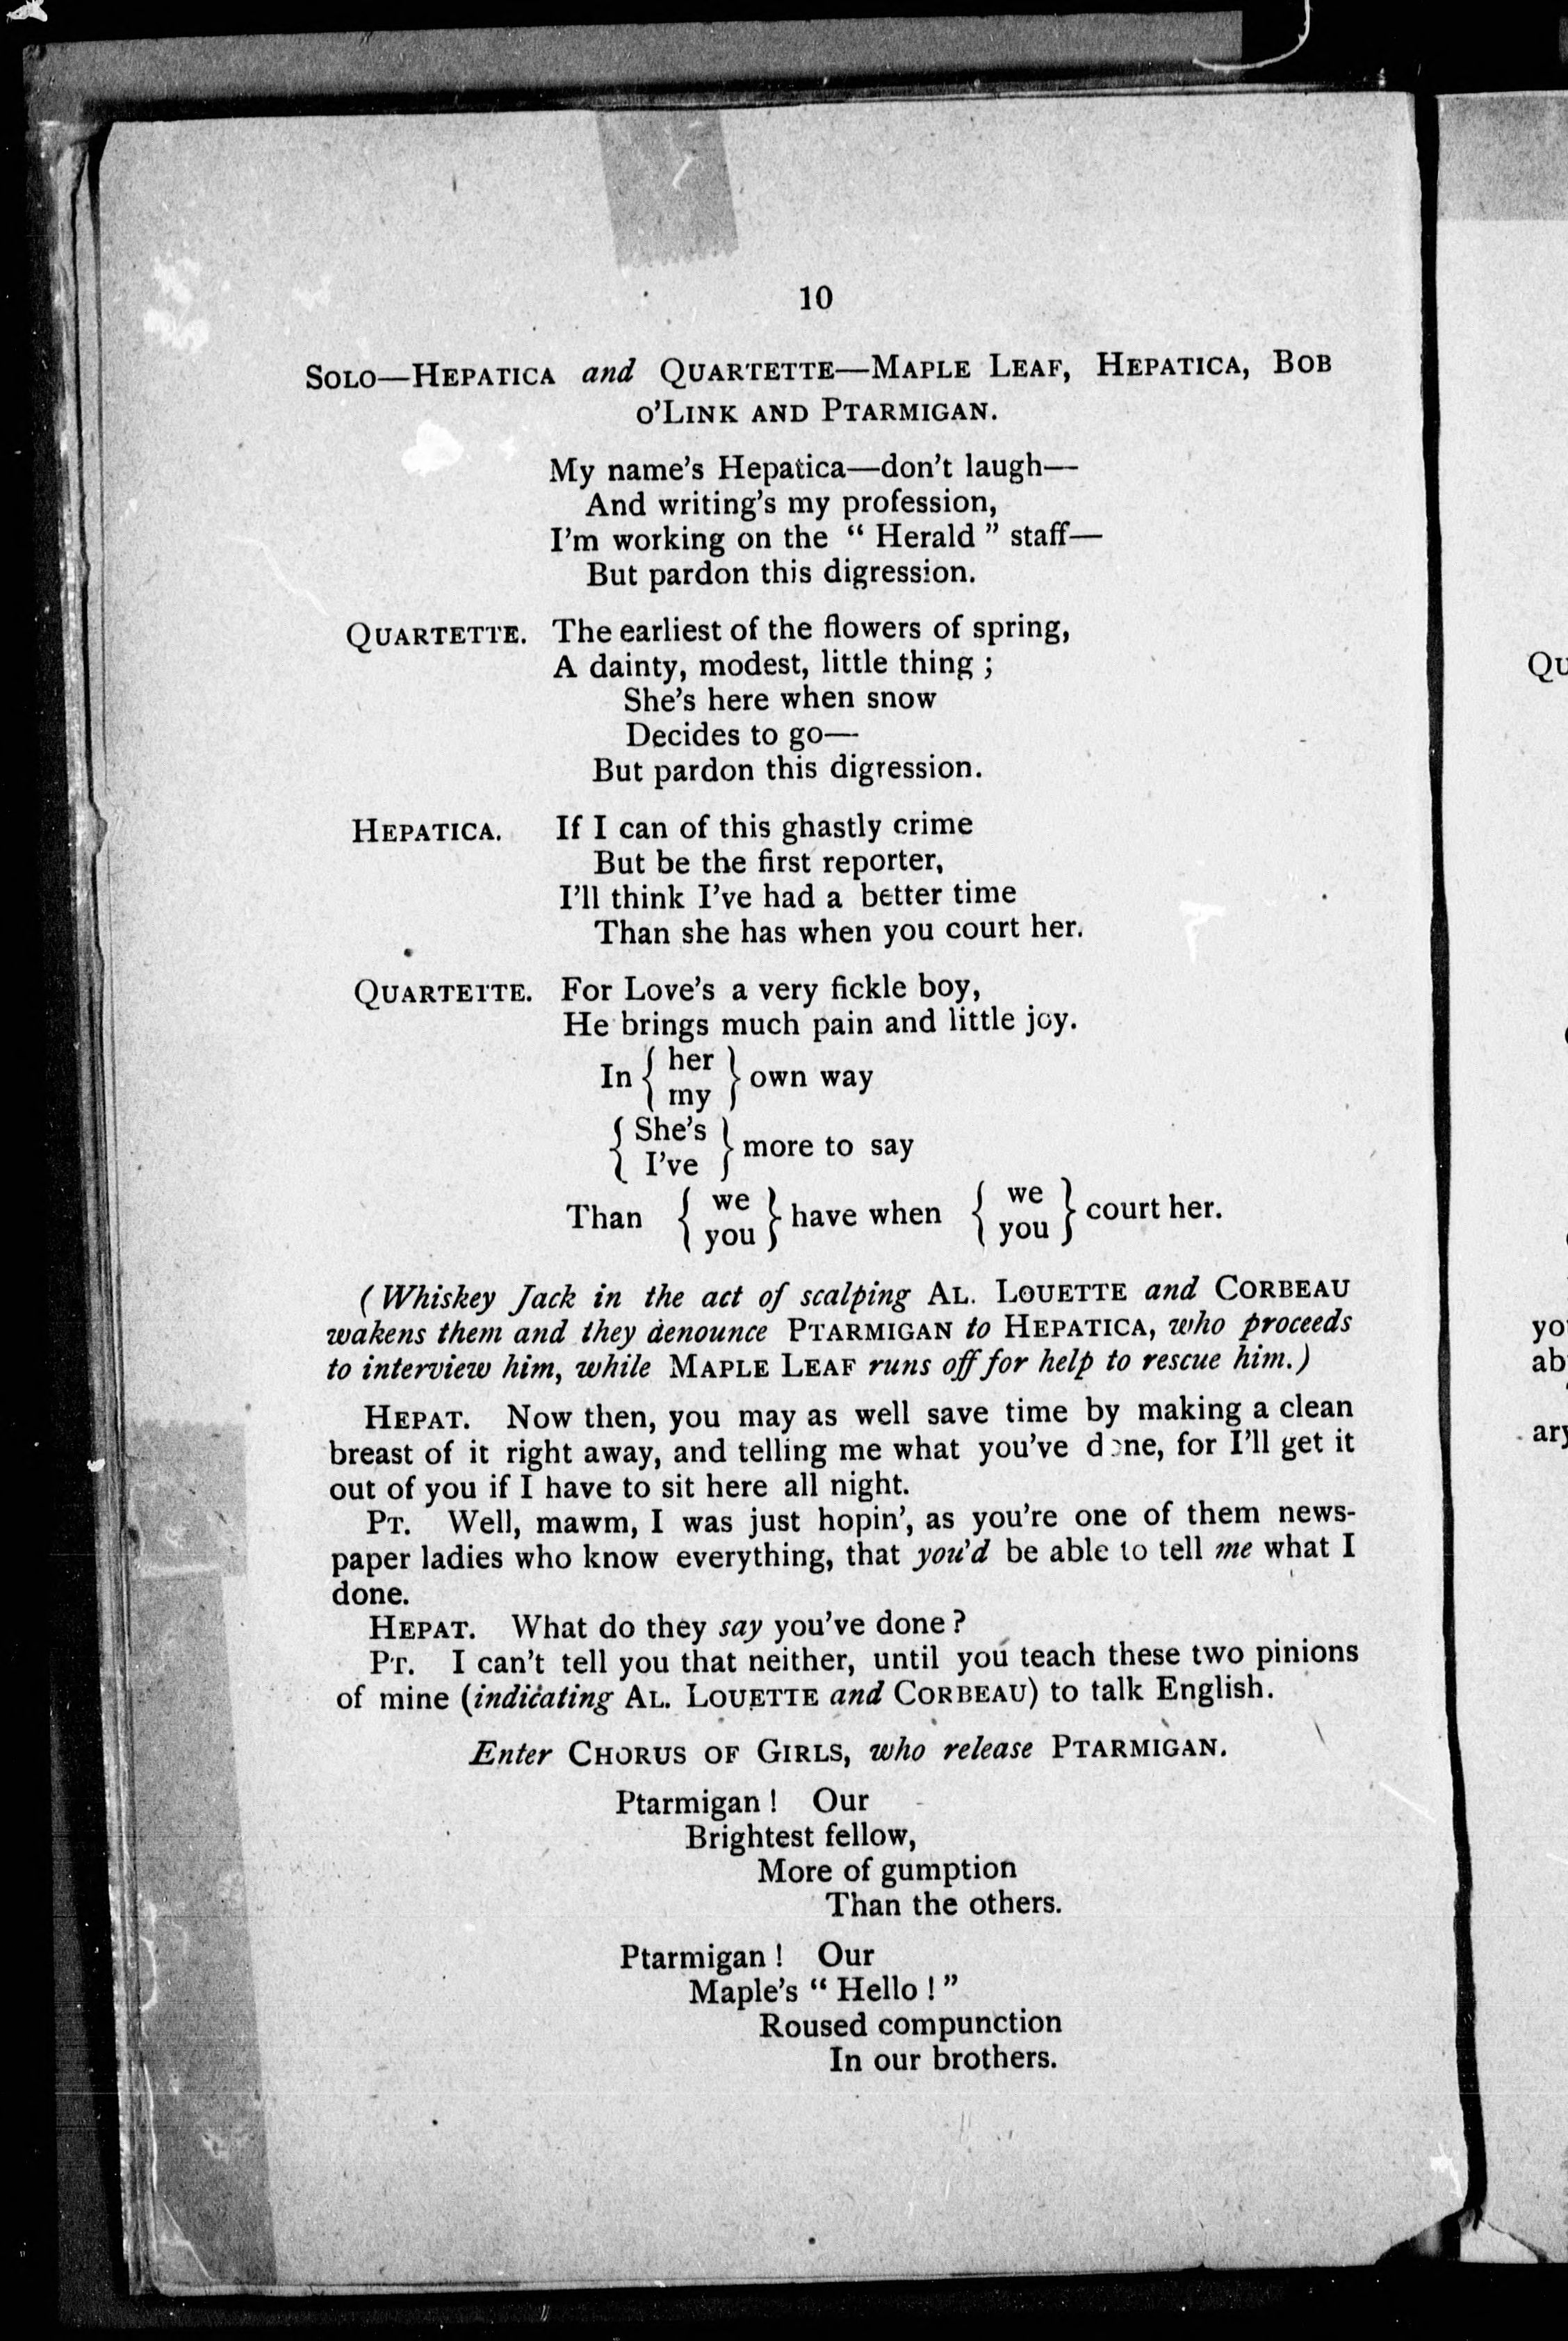 10
SOLO—HEPATICA and QUARTETTE—MAPLE LEAF, HEPATICA, BOB
O'LINK AND PTARMIGAN.
My name's Hepatica—don't laugh—
And writing's my profession,
I'm working on the " Herald " staff—
But pardon this digression.
QUARTETTE. The earliest of the flowers of spring,
A dainty, modest, little thing ;
She's here when snow
Decides to go—
But pardon this digression.
HEPATICA. If I can of this ghastly crime
But be the first reporter,
I'll think I've had a better time
Than she has when you court her.
QUARTETTE. For Love's a very fickle boy,
He brings much pain and little joy.
In { her / my } own way
{ She's / I've } more to say
Than { we / you } have when { we / you } court her.
(Whiskey Jack in the act of scalping AL. LOUETTE and CORBEAU
wakens them and they denounce PTARMIGAN to HEPATICA, who proceeds
to interview him, while MAPLE LEAF runs off for help to rescue him.)
HEPAT. Now then, you may as well save time by making a clean
breast of it right away, and telling me what you've done, for I'll get it
out of you if I have to sit here all night.
PT. Well, mawm, I was just hopin', as you're one of them news-
paper ladies who know everything, that you'd be able to tell me what I
done.
HEPAT. What do they say you've done ?
PT. I can't tell you that neither, until you teach these two pinions
of mine (indicating AL. LOUETTE and CORBEAU) to talk English.
Enter CHORUS OF GIRLS, who release PTARMIGAN.
Ptarmigan ! Our
Brightest fellow,
More of gumption
Than the others.
Ptarmigan ! Our
Maple's " Hello ! "
Roused compunction
In our brothers.